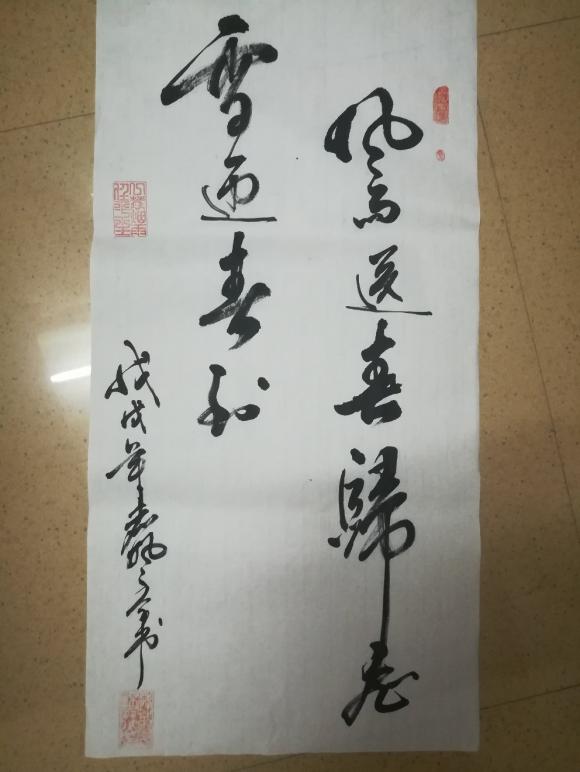 风雨送春歸飛
雪迎春到
戊戌年